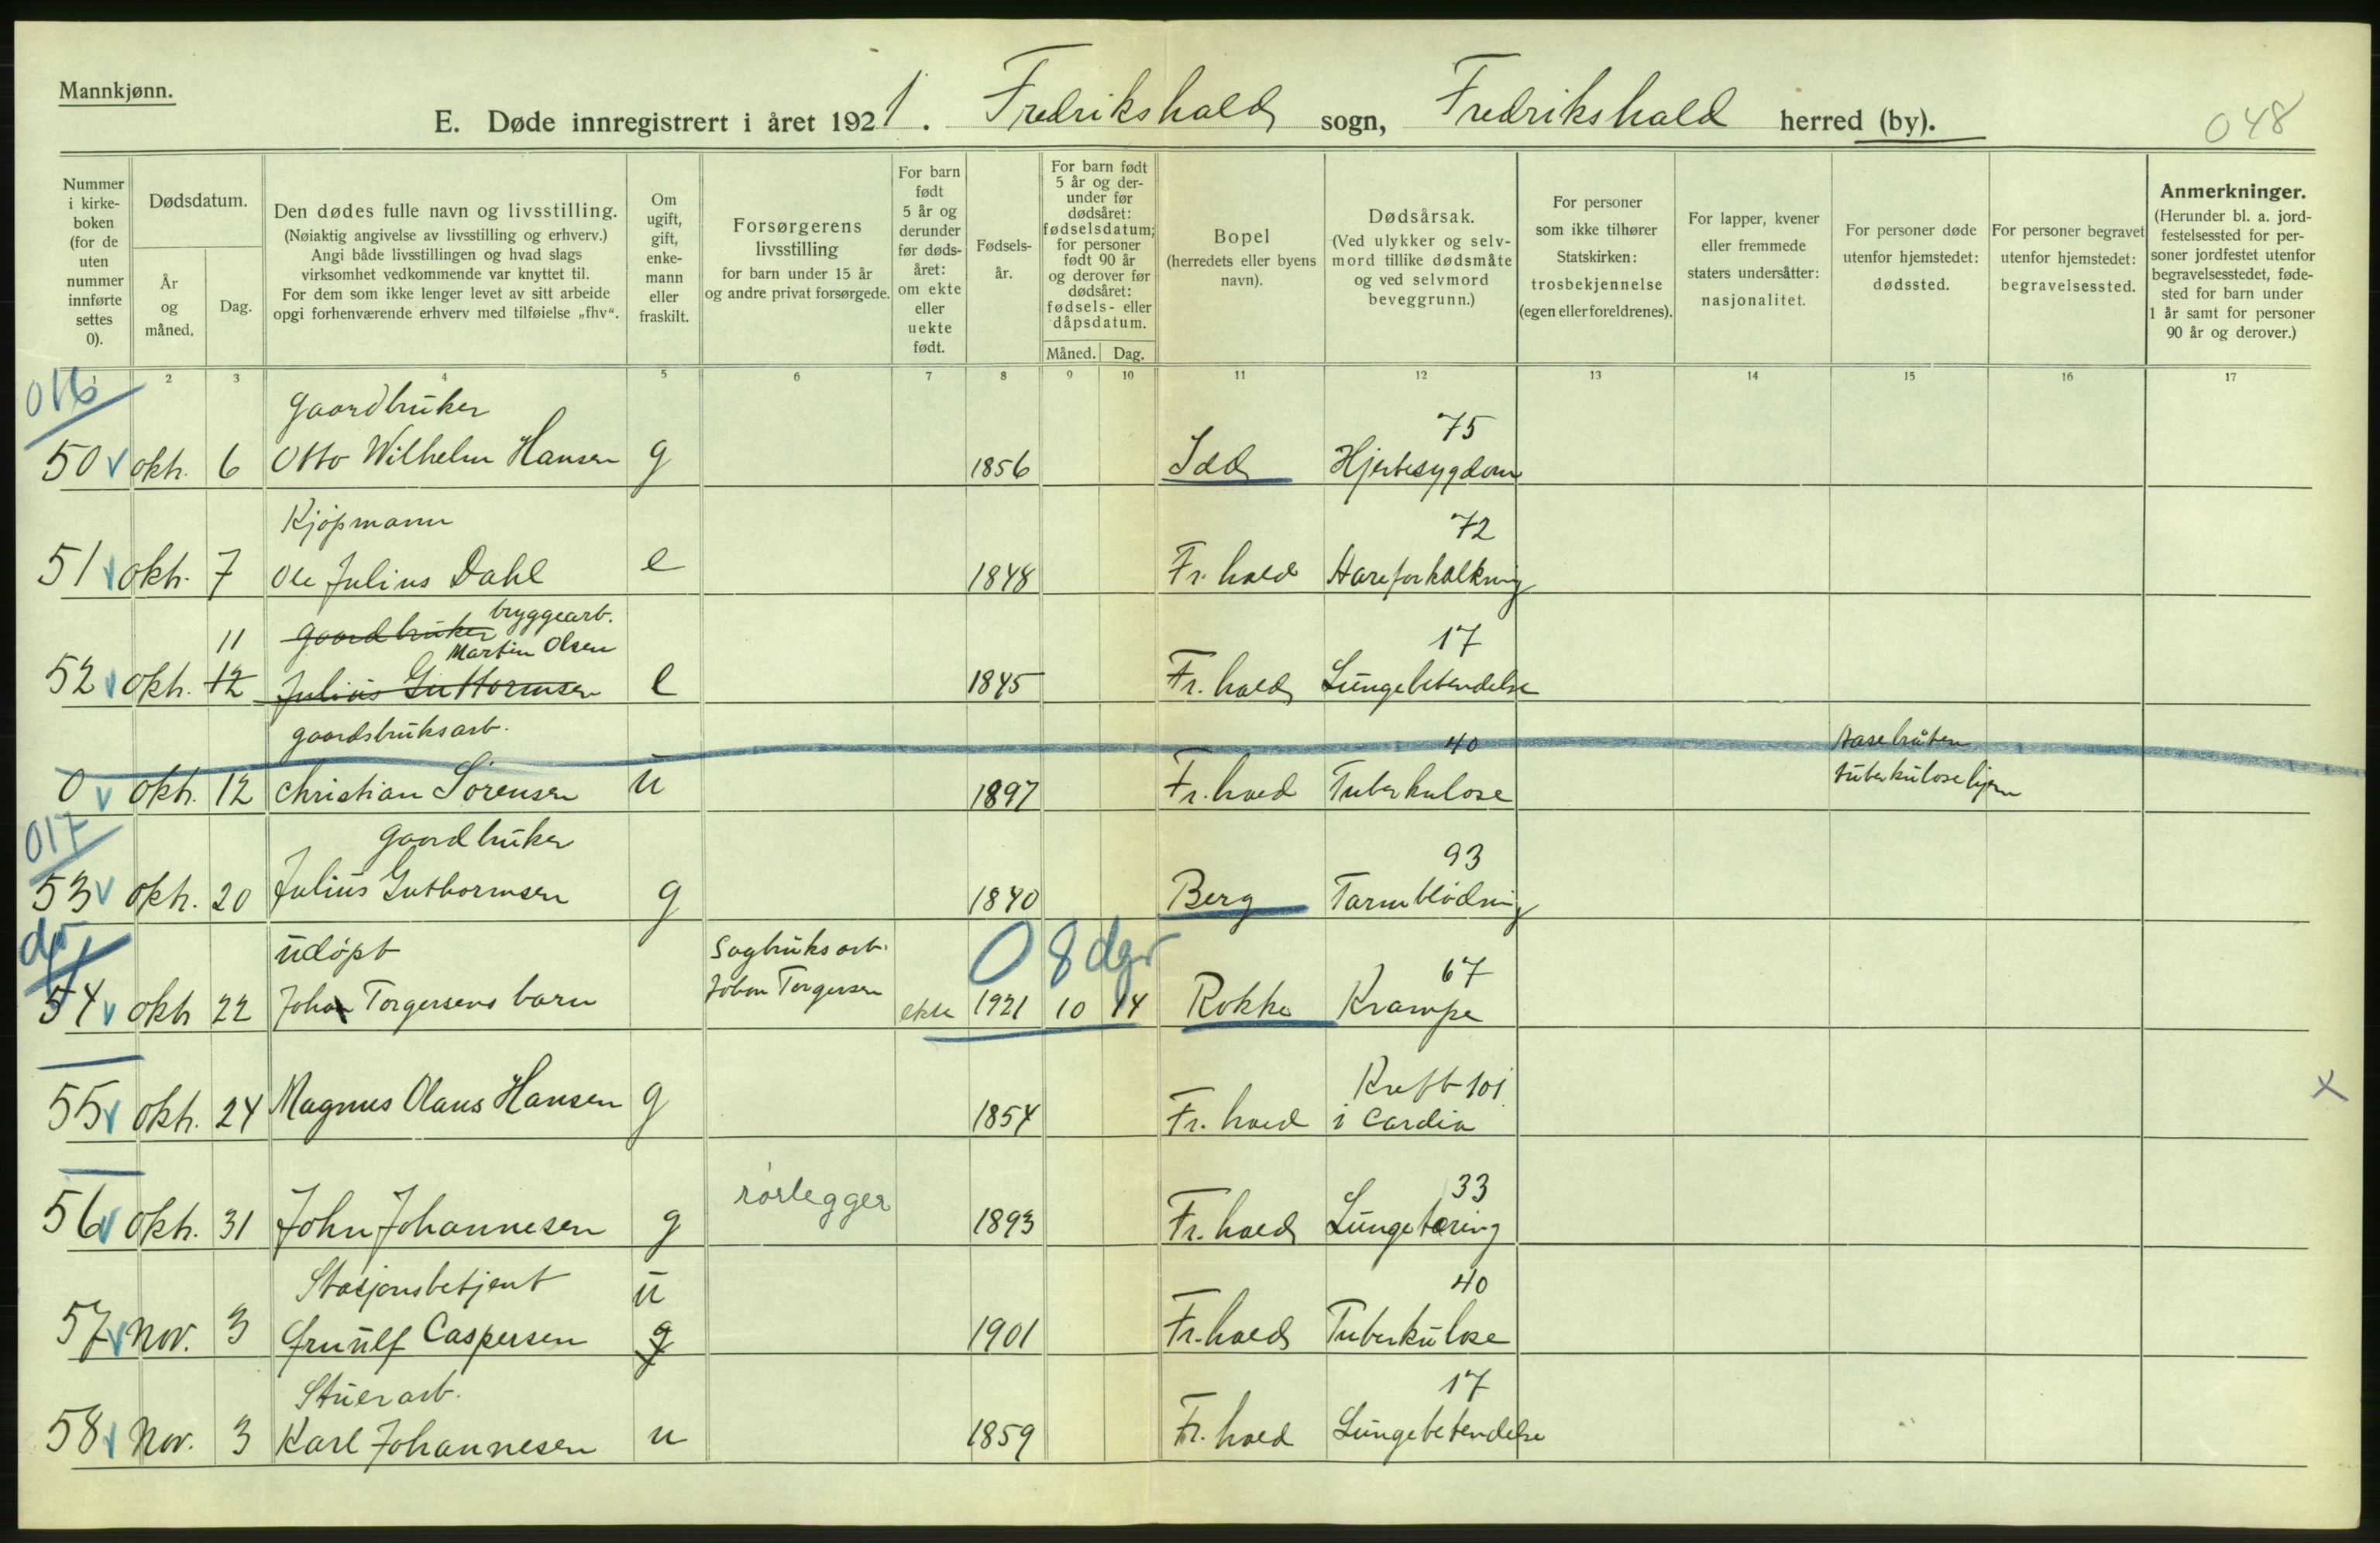 Mannkjønn.
E. Døde innregistrert i året 1921. Fredrikshald sogn, Fredrikshald herred (by).
048
Nummer i kirke-boken (for de uten nummer innførte settes 0).
Dødsdatum.
År og måned.
Dag.
Den dødes fulle navn og livsstilling.
(Nøiaktig angivelse av livsstilling og erhverv.)
Angi både livsstillingen og hvad slags
virksomhet vedkommende var knyttet til.
For dem som ikke lenger levet av sitt arbeide
opgi forhenværende erhverv med tilføielse „fhv“.
Om ugift, gift, enke-mann eller fraskilt.
Forsørgerens livsstilling
for barn under 15 år
og andre privat forsørgede.
For barn født 5 år og derunder før døds-året: om ekte eller uekte født.
Fødsels-år.
For barn født 5 år og der-under før dødsåret: fødselsdatum; for personer født 90 år og derover før dødsåret: fødsels- eller dåpsdatum.
Måned.
Dag.
Bopel
(herredets eller byens navn).
Dødsårsak.
(Ved ulykker og selv-mord tillike dødsmåte og ved selvmord beveggrunn.)
For personer som ikke tilhører Statskirken: trosbekjennelse (egen eller foreldrenes).
For lapper, kvener eller fremmede staters undersåtter: nasjonalitet.
For personer døde utenfor hjemstedet: dødssted.
For personer begravet utenfor hjemstedet: begravelsessted.
Anmerkninger.
(Herunder bl. a. jord-festelsessted for per-soner jordfestet utenfor begravelsesstedet, føde-sted for barn under 1 år samt for personer 90 år og derover.)
1 2 3 4 5 6 7 8 9 10 11 12 13 14 15 16 17
016
gaardbruker
75
50 v okt. 6 Otto Wilhelm Hansen g 1856 Idd Hjertesygdom
Kjøpmann
72
51 v okt. 7 Ole Julius Dahl e 1848 Fr. hald Aareforkalkning
bryggearb.
11 gaardbruker
Martin Olsen
17
52 v okt. 12 Julius Guttormsen e 1845 Fr. hald Lungebetendelse
gaardsbruksarb.
40
Aasebråten
0 v okt. 12 Christian Sørensen u 1897 Fr. hald Tuberkulose tuberkulosehjem
017
gaardbruker
93
53 v okt. 20 Julius Guthormsen g 1840 Berg Tarmblødning
udøpt
Sagbruksarb.
0 8 dgr
67
54 v okt 22 Johan Torgersens barn Johan Torgersen ekte 1921 10 14 Rokke Krampe
Kreft 101
55 v okt. 24 Magnus Olaus Hansen g 1854 Fr. hald i Cardia
x
rørlegger
33
56 v okt. 31 John Johannesen g 1893 Fr. hald Lungetæring
Stasjonsbetjent
u
40
57 v Nov. 3 Caspersen g 1901 Fr. hald Tuberkulose
Stuerarb.
17
58 v Nov. 3 Karl Johannesen u 1859 Fr. hald Lungebetendelse